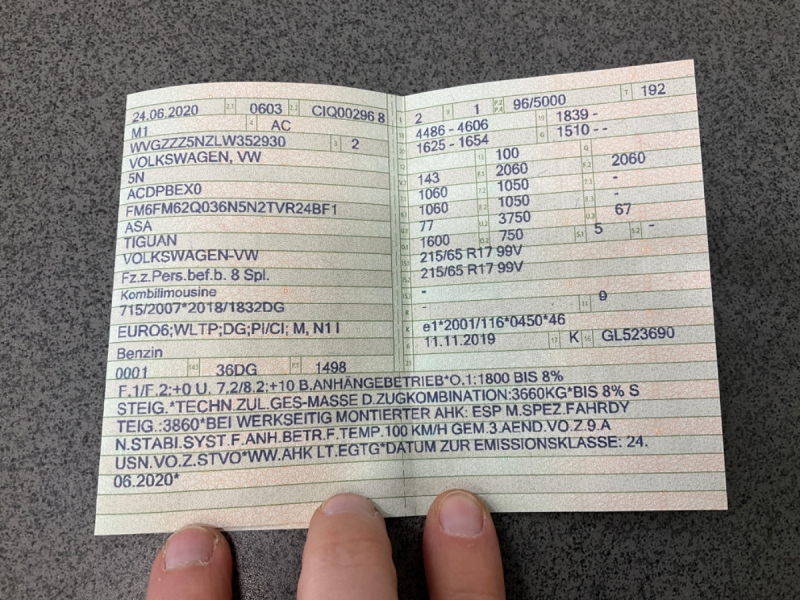 24.06.2020 2.1 0603 2.2 CIQ00296 8
M1 4 AC
WVGZZZ5NZLW352930 3 2
VOLKSWAGEN, VW
5N
ACDPBEX0
FM6FM62Q036N5N2TVR24BF1
ASA
TIGUAN
VOLKSWAGEN-VW
Fz.z.Pers.bef.b. 8 Spl.
Kombilimousine
715/2007*2018/1832DG
EURO6;WLTP;DG;PI/CI; M, N1 I
Benzin
0001 14.1 36DG P.1 1498
L 2 9 1 P.2 P.4 96/5000 T 192
18 4486 - 4606 19 1839 -
20 1625 - 1654 G 1510 - -
12 13 100 Q
V.7 143 F.1 2060 F.2 2060
7.1 1060 7.2 1050 7.3 -
8.1 1060 8.2 1050 8.3 -
U.1 77 U.2 3750 U.3 67
O.1 1600 O.2 750 S.1 5 S.2 -
215/65 R17 99V
215/65 R17 99V
-
- 11 9
K e1*2001/116*0450*46
6 11.11.2019 17 K 16 GL523690
21
F.1/F.2:+0 U. 7.2/8.2:+10 B.ANHÄNGEBETRIEB*O.1:1800 BIS 8%
STEIG.*TECHN.ZUL.GES-MASSE D.ZUGKOMBINATION:3660KG*BIS 8% S
TEIG.:3860*BEI WERKSEITIG MONTIERTER AHK: ESP M.SPEZ.FAHRDY
N.STABI.SYST.F.ANH.BETR.F.TEMP.100 KM/H GEM.3.AEND.VO.Z.9.A
USN.VO.Z.STVO*WW.AHK LT.EGTG*DATUM ZUR EMISSIONSKLASSE: 24.
06.2020*